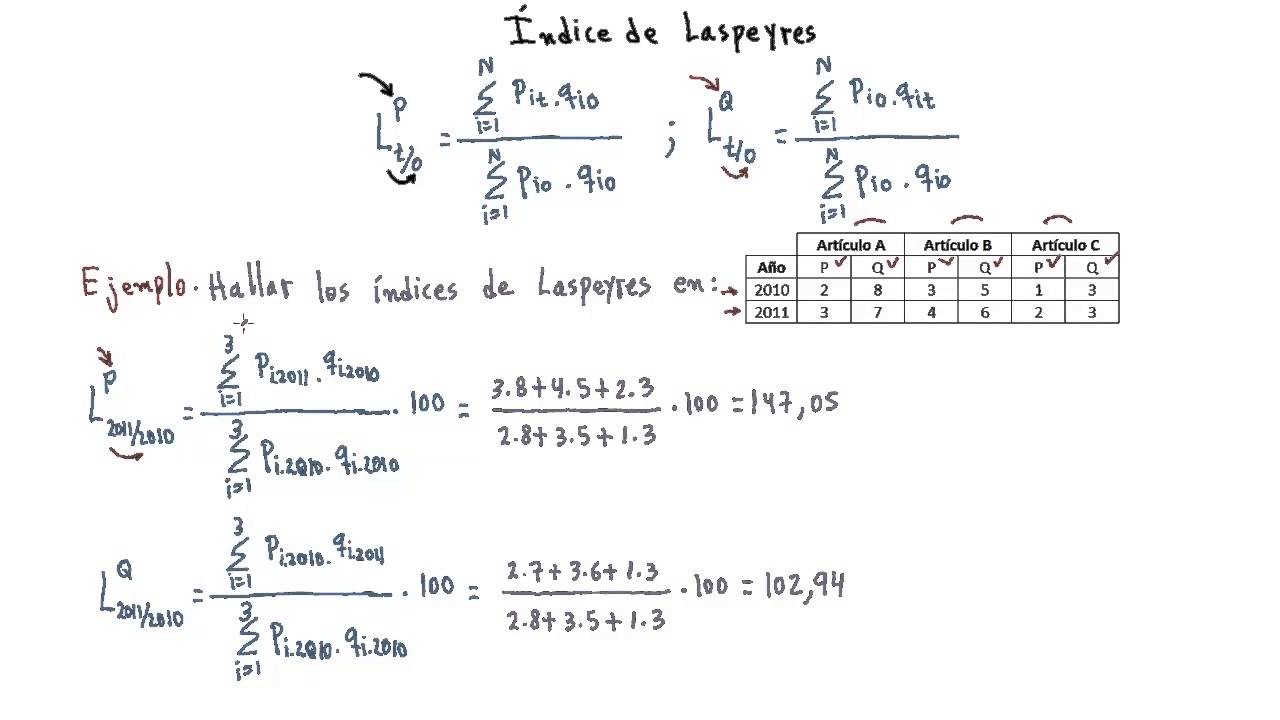 Índice de Laspeyres
L^P_{t/0} = \frac{\sum_{i=1}^{N} P_{it} \cdot q_{i0}}{\sum_{i=1}^{N} P_{i0} \cdot q_{i0}} ; L^Q_{t/0} = \frac{\sum_{i=1}^{N} P_{i0} \cdot q_{it}}{\sum_{i=1}^{N} P_{i0} \cdot q_{i0}}
Ejemplo. Hallar los índices de Laspeyres en:
Artículo A Artículo B Artículo C
Año P Q P Q P Q
2010 2 8 3 5 1 3
2011 3 7 4 6 2 3
L^P_{2011/2010} = \frac{\sum_{i=1}^{3} P_{i.2011} \cdot q_{i.2010}}{\sum_{i=1}^{3} P_{i.2010} \cdot q_{i.2010}} \cdot 100 = \frac{3.8+4.5+2.3}{2.8+3.5+1.3} \cdot 100 = 147,05
L^Q_{2011/2010} = \frac{\sum_{i=1}^{3} P_{i.2010} \cdot q_{i.2011}}{\sum_{i=1}^{3} P_{i.2010} \cdot q_{i.2010}} \cdot 100 = \frac{2.7+3.6+1.3}{2.8+3.5+1.3} \cdot 100 = 102,94